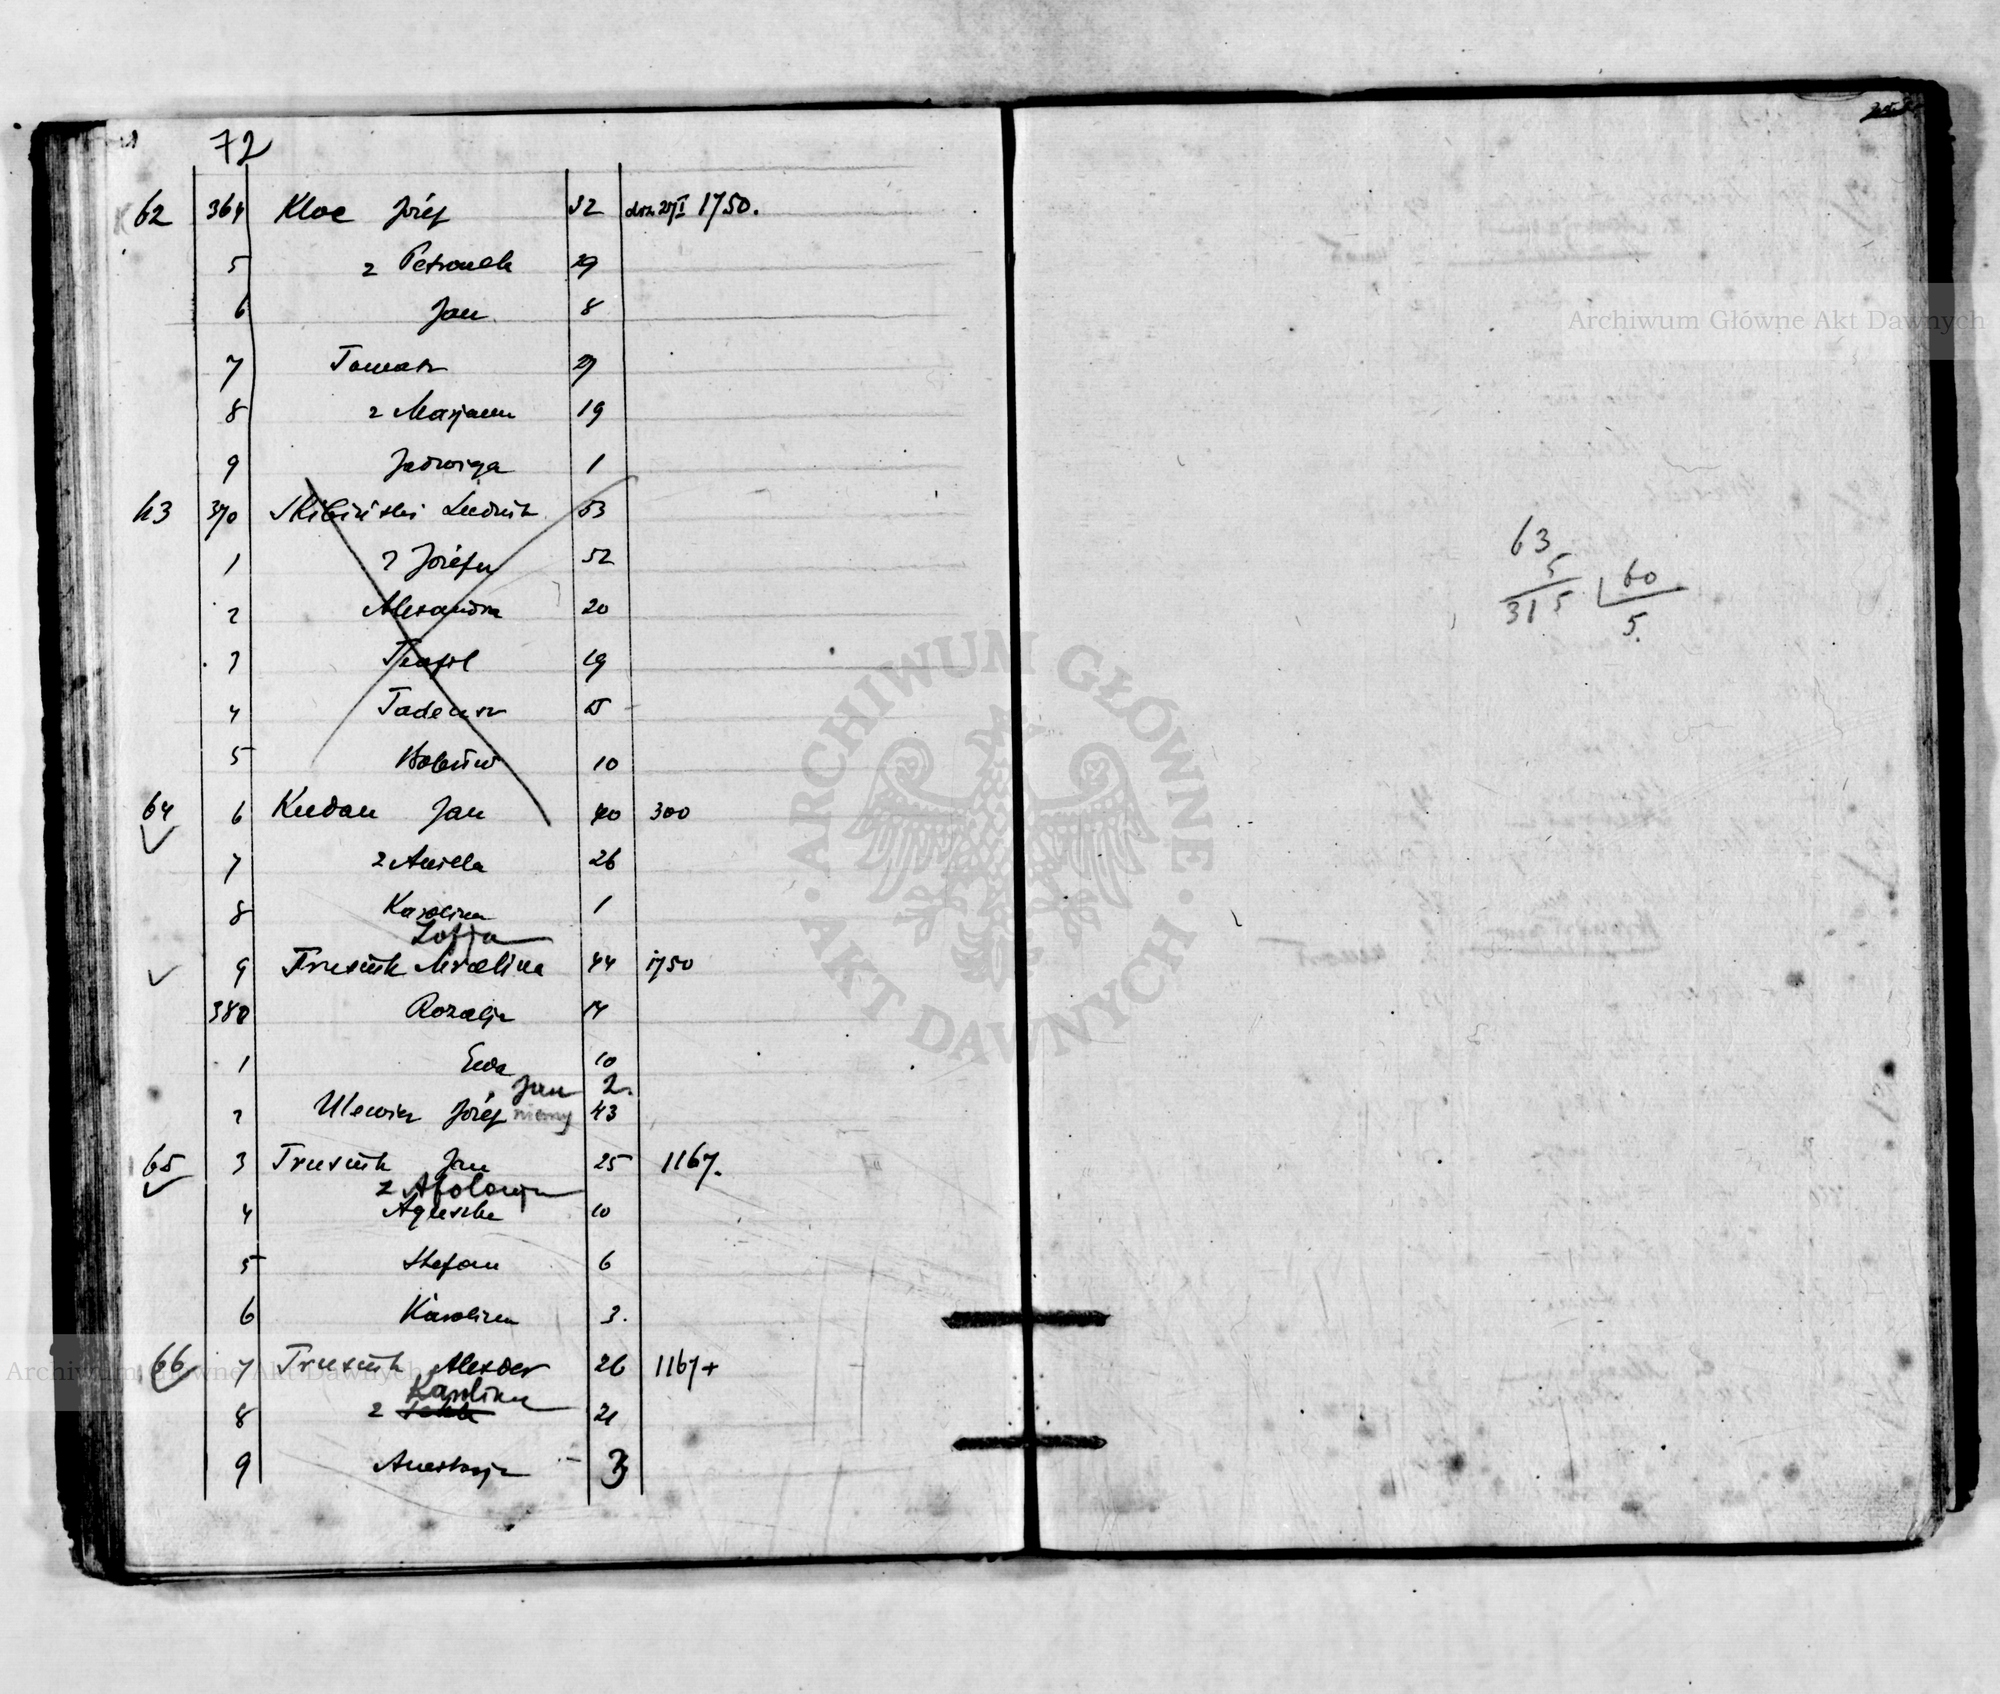 72
62 364 Kloc Józef 32 1750.
5 z Petronela 29
6 Jan 8
7 Tomasz 27
8 z Marjanna 19
9 Jadwiga 1
63 370 Skibiński Ludwik 53
1 z Józefa 52
2 Alexandra 20
3 Teofil 19
4 Tadeusz 15
5 10
64 6 Kudan Jan 40 300
7 z Aniela 26
8 Karolina 1
Zofja
9 44 1750
380 Rozalja 14
1 Ewa 10
Jan 2
2 Ulewicz Józef niemy 43
65 3 Jan 25 1167.
z Apolonja
4 Agnieszka 10
5 Stefan 6
6 Karolina 3.
66 7 Alexder 26 1167+
Karolina
8 z 21
9 Anastazja - 3
63
5
315 60
5.
Archiwum Główne Akt Dawnych
ARCHIWUM GŁÓWNE
AKT DAWNYCH
Archiwum Główne Akt Dawnych